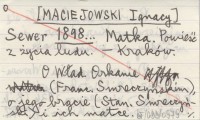 [MACIEJOWSKI Ignacy]
Sewer 1898... Matka. Powieść
z życia ludu. — Kraków.
O Wład. Orkanie
(Franc. Smreczyńskim),
o jego bracie (Stan. Smreczyń-
skim) i ich matce.